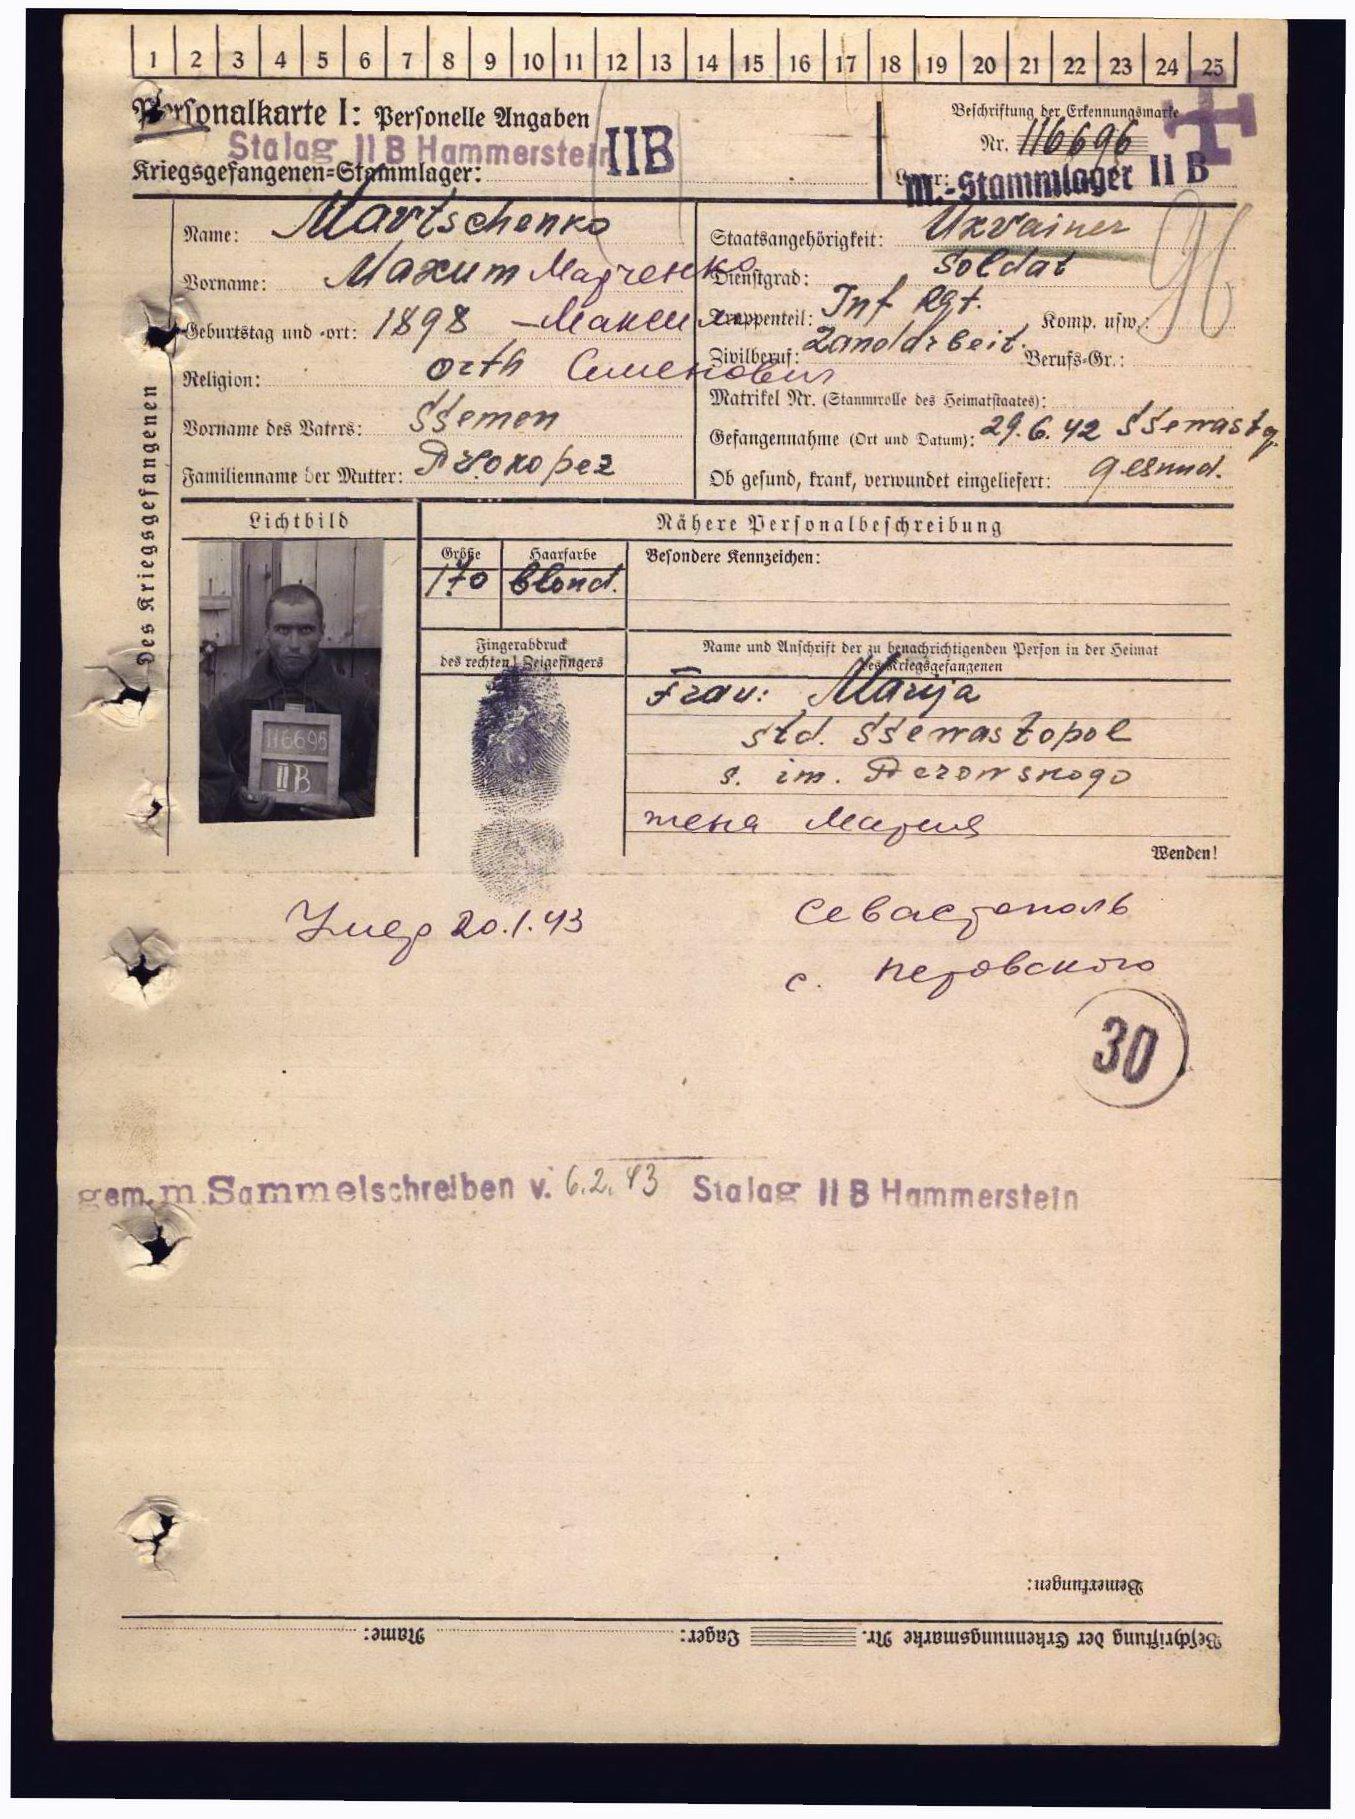 1 2 3 4 5 6 7 8 9 10 11 12 13 14 15 16 17 18 19 20 21 22 23 24 25
Personalkarte I: Personelle Angaben
Stalag II B Hammerstein IIB
Kriegsgefangenen=Stammlager:
Beschriftung der Erkennungsmarke
Nr. 116696
Lager: M.-Stammlager II B
Des Kriegsgefangenen
Name: Martschenko
Vorname: Maxum Марченко
Geburtstag und -ort: 1898 – Максим
Religion: orth Семенович
Vorname des Vaters: Sšemen
Familienname der Mutter: Prokopez
Staatsangehörigkeit: Ukrainer
Dienstgrad: Soldat
Truppenteil: Inf Rgt. Komp. usw.:
Zivilberuf: Landarbeit. Berufs=Gr.:
96
Matrikel Nr. (Stammrolle des Heimatstaates):
Gefangennahme (Ort und Datum): 29.6.42 Sšewastop.
Ob gesund, krank, verwundet eingeliefert: gesund.
Lichtbild
Nähere Personalbeschreibung
Größe Haarfarbe Besondere Kennzeichen:
170 blond.
116696
II B
Fingerabdruck
des rechten Zeigefingers
Name und Anschrift der zu benachrichtigenden Person in der Heimat
des Kriegsgefangenen
Frau: Marija
std. Sšewastopol
s. im. Perowskogo
жена Мария
Wenden!
Умер 20.1.43
Севастополь
с. Перовского
30
gem. m. Sammelschreiben v. 6.2.43 Stalag II B Hammerstein
Bemerkungen:
Beschriftung der Erkennungsmarke Nr. Lager: Name: